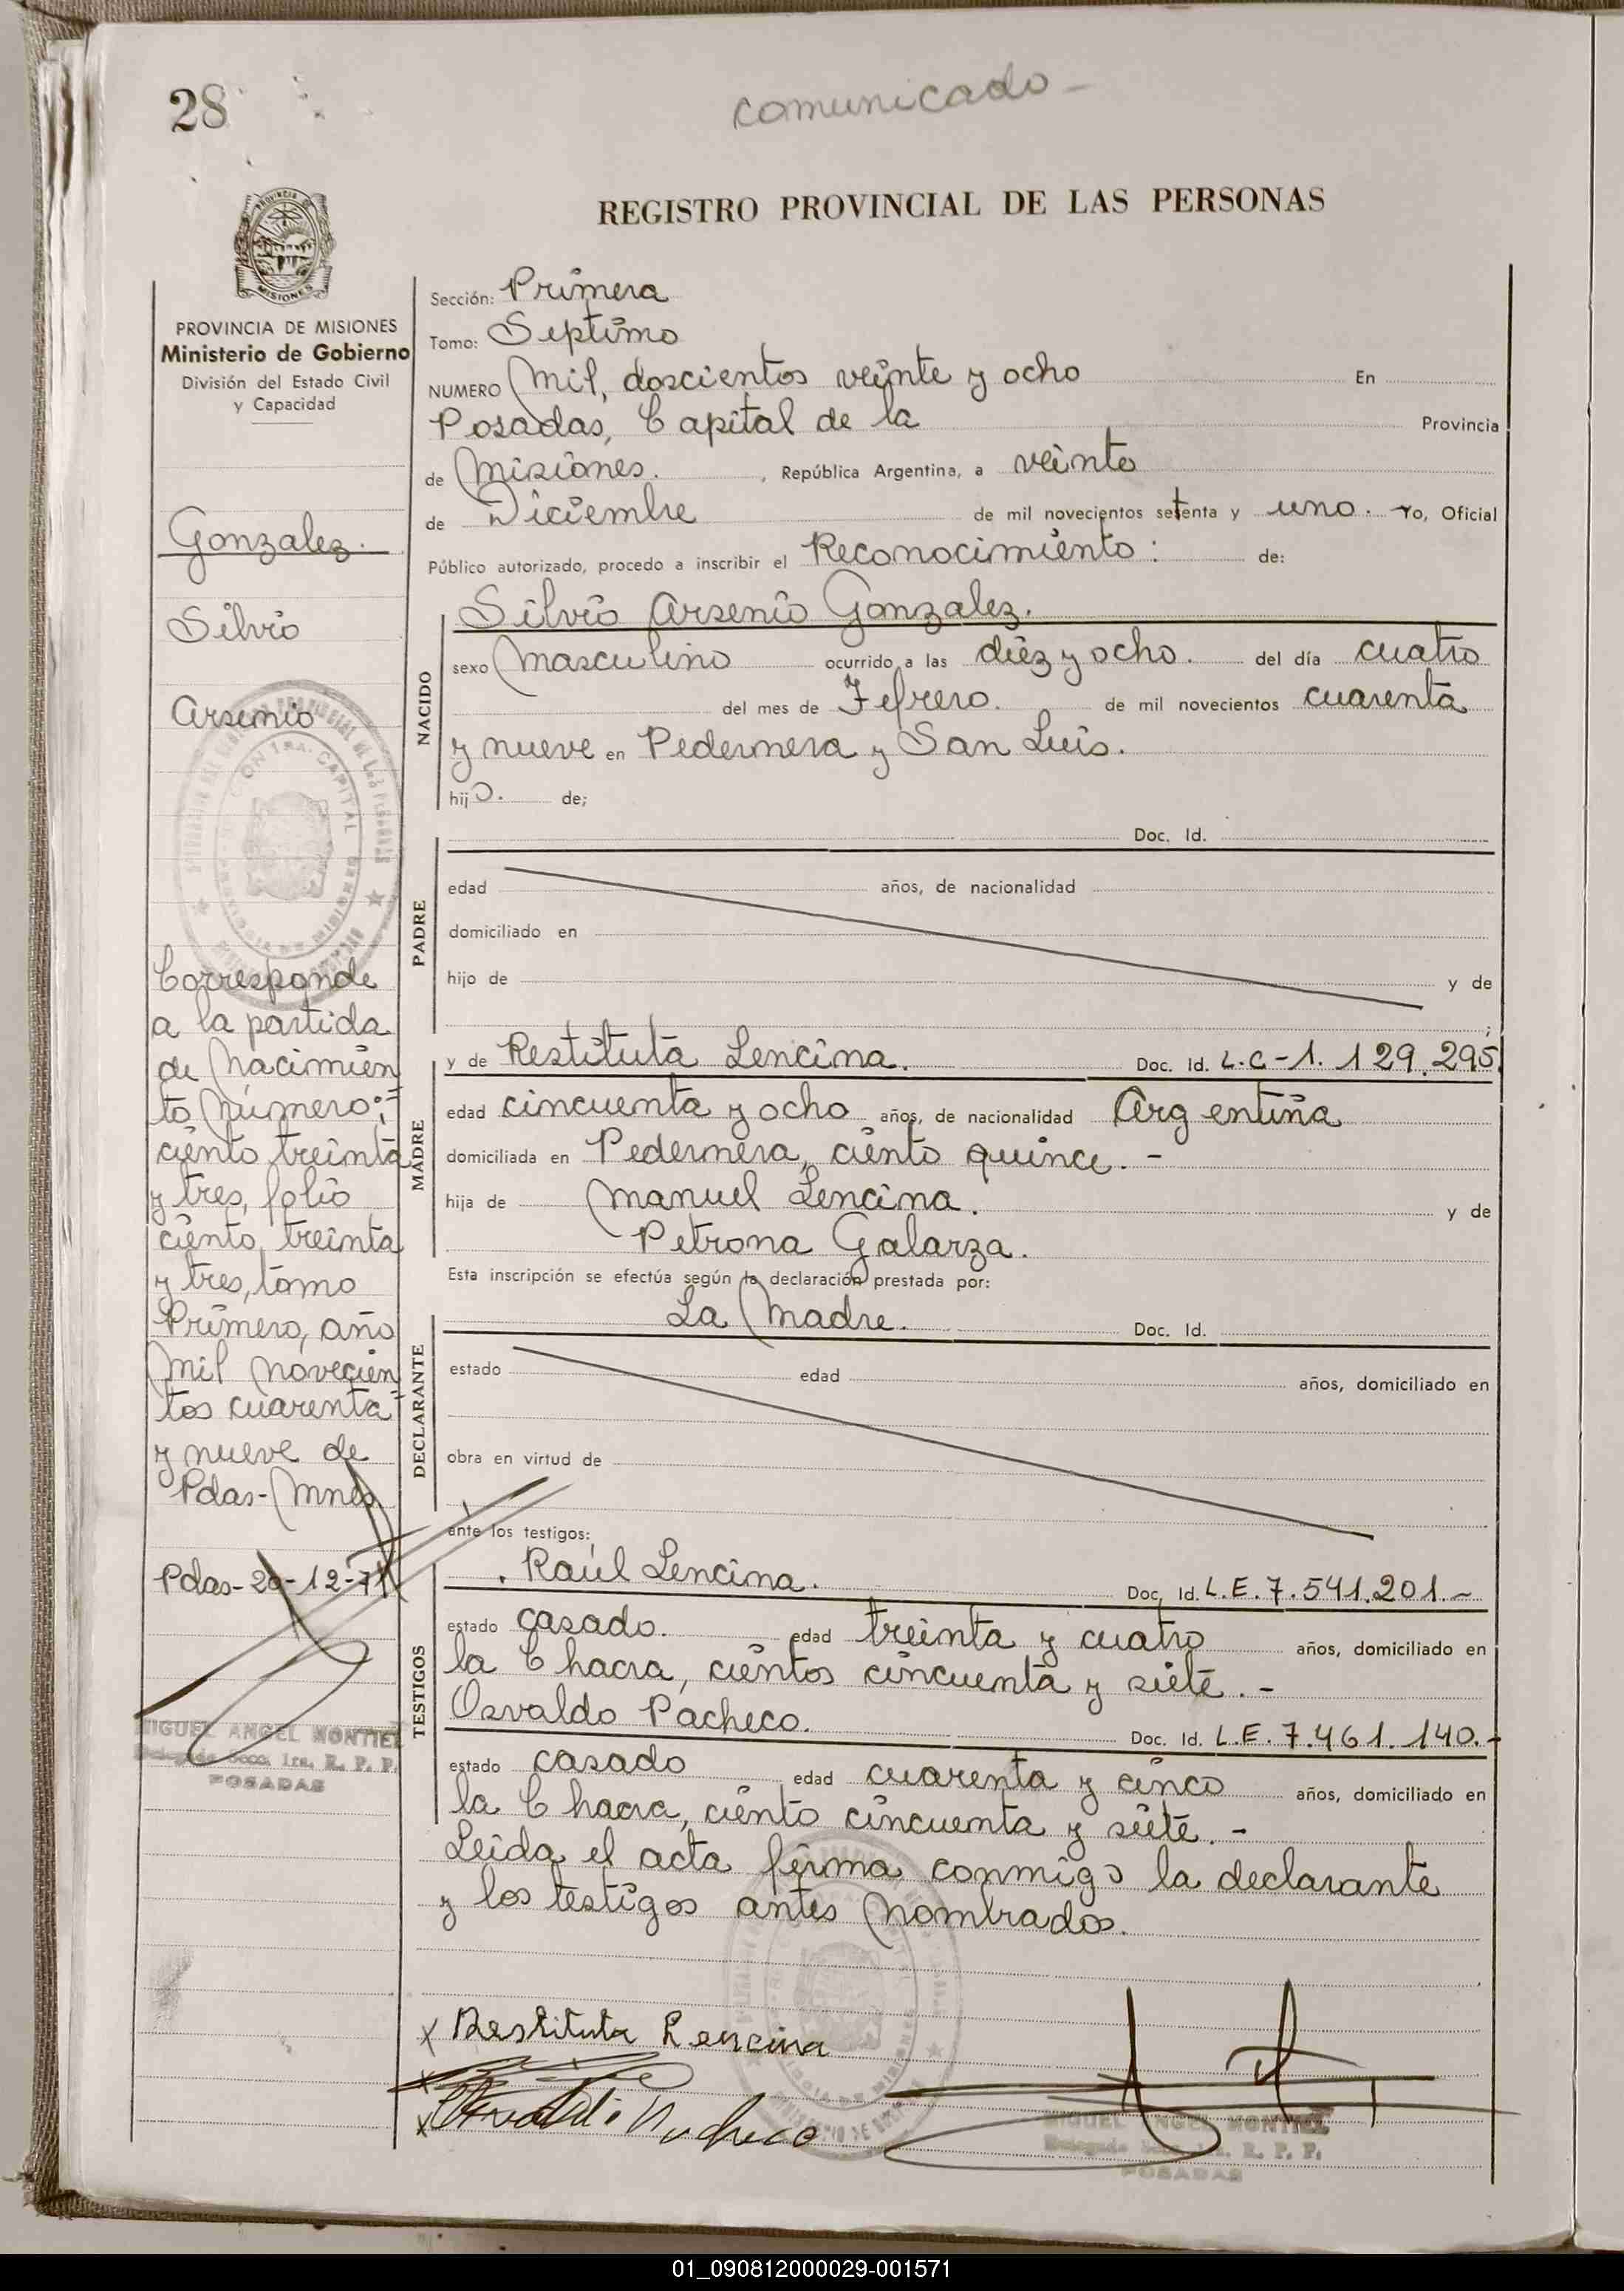 28
comunicado -
REGISTRO PROVINCIAL DE LAS PERSONAS
PROVINCIA DE MISIONES
Ministerio de Gobierno
División del Estado Civil
y Capacidad
Gonzalez.
Silvio
Arsenio
Corresponde
a la partida
de Nacimien
to Número:=
ciento treinta
y tres, folio
ciento treinta
y tres, tomo
Primero, año
Mil Novecien
tos cuarenta=
y nueve de
Pdas-Mnes
Pdas-20-12-71
MIGUEL ANGEL MONTIEL
Delegado Secc. 1ra. R. P. P.
POSADAS
Sección: Primera
Tomo: Septimo
NUMERO Mil, doscientos veinte y ocho En
Posadas, Capital de la Provincia
de Misiones. , República Argentina, a veinte
de Diciembre de mil novecientos setenta y uno. Yo, Oficial
Público autorizado, procedo a inscribir el Reconocimiento: de:
NACIDO
Silvio Arsenio Gonzalez.
sexo Masculino ocurrido a las diez y ocho. del día cuatro
del mes de Febrero. de mil novecientos cuarenta
y nueve en Pedernera y San Luis.
hijo. de;
PADRE
Doc. Id.
edad años, de nacionalidad
domiciliado en
hijo de y de
;
MADRE
y de Restituta Lencina. Doc. Id. L.C-1.129.295
edad cincuenta y ocho años, de nacionalidad Argentina
domiciliada en Pedernera, ciento quince.-
hija de Manuel Lencina. y de
Petrona Galarza.
Esta inscripción se efectúa según la declaración prestada por:
DECLARANTE
La Madre. Doc. Id.
estado edad años, domiciliado en
obra en virtud de
ante los testigos:
TESTIGOS
. Raúl Lencina. Doc. Id. L.E.7.541.201.-
estado casado. edad treinta y cuatro años, domiciliado en
la Chacra, cientos cincuenta y siete.-
Osvaldo Pacheco. Doc. Id. L.E.7.461.140.-
estado casado edad cuarenta y cinco años, domiciliado en
la Chacra, ciento cincuenta y siete.-
Leida el acta firma conmigo la declarante
y los testigos antes Nombrados.
x Restituta Lencina
x
x Osvaldo Pacheco
MIGUEL ANGEL MONTIEL
Delegado Secc. 1ra. R. P. P.
POSADAS
01_090812000029-001571